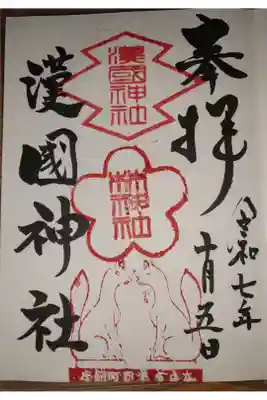 奉拝
令和七年
十月五日
漢國神社
林神社
漢國神社